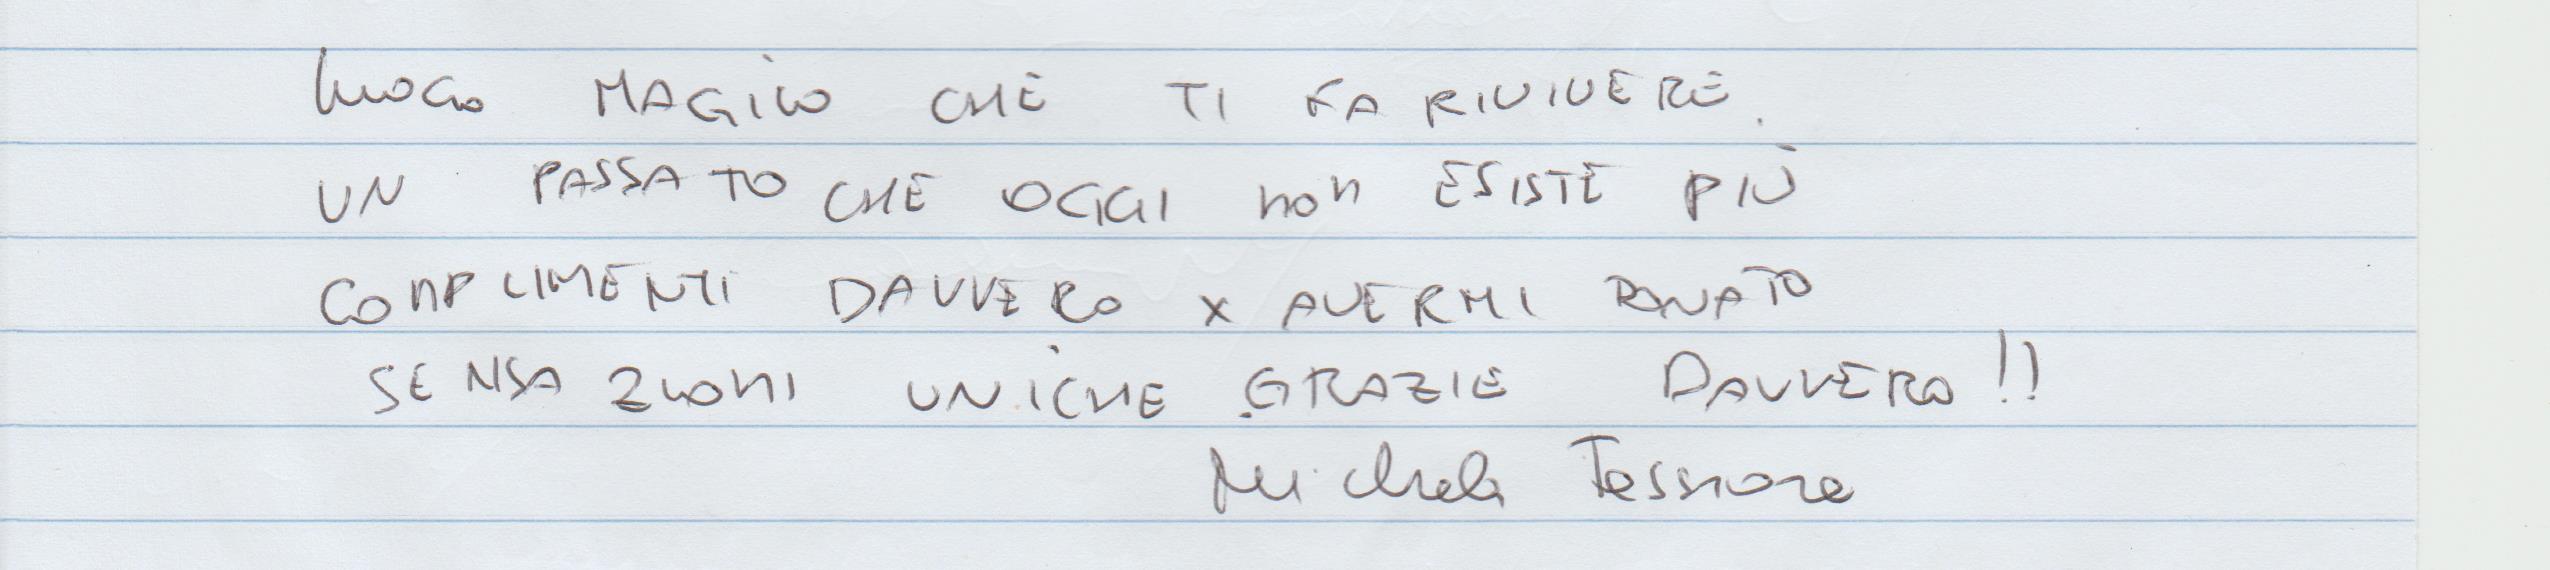 Luogo MAGICO CHE TI FA RIVIVERE.
UN PASSATO CHE OGGI non ESISTE PIÙ
COMPLIMENTI DAVVERO X AVERMI DONATO
SENSAZIONI UNICHE GRAZIE DAVVERO!!
Michele Tessiore